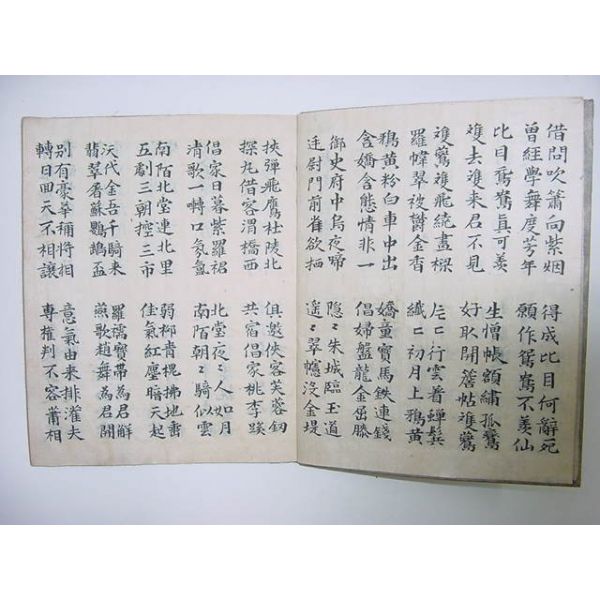 借問吹簫向紫姻
曾經學舞度芳年
得成比目何辭死
願作鴛鴦不羨仙
比目鴛鴦真可羨
雙去雙来君不見
生憎帳額繡孤鸞
好取開簷帖雙鷰
雙鷰雙飛繞畫樑
羅幃翠被鬱金香
片〻行雲着蟬鬂
纖〻初月上鵶黃
鵶黃粉白車中出
含嬌含態情非一
嬌童寶馬鉄連錢
倡婦盤龍金屈膝
御史府中烏夜啼
廷尉門前雀欲栖
隱〻朱城臨玉道
遥〻翠幰没金堤
挾彈飛鷹杜陵北
探丸借客渭橋西
俱邀俠客芙蓉釰
共宿倡家桃李蹊
倡家日暮紫羅裙
清歌一囀口氛氳
北堂夜〻人如月
南陌朝〻騎似雲
南陌北堂連北里
五劇三朝控三市
弱柳青槐拂地垂
佳氣紅塵暗天起
漢代金吾千騎来
翡翠屠蘇鸚鵡盃
羅襦寶帶為君解
燕歌趙舞為君開
别有豪華稱將相
轉日回天不相讓
意氣由来排灌夫
專權判不容蕭相